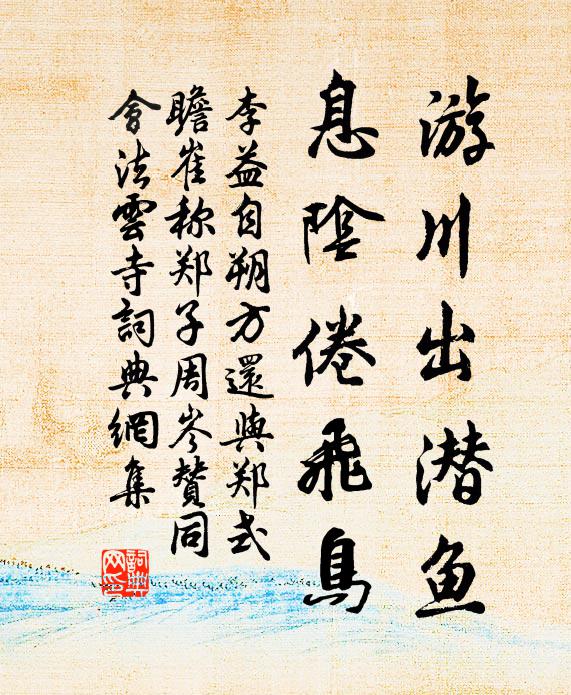 游川出潜鱼
息陰倦飛鳥
李益自朔方還與郑式
瞻崔称郑子周岑賛同
會法雲寺詞典網集